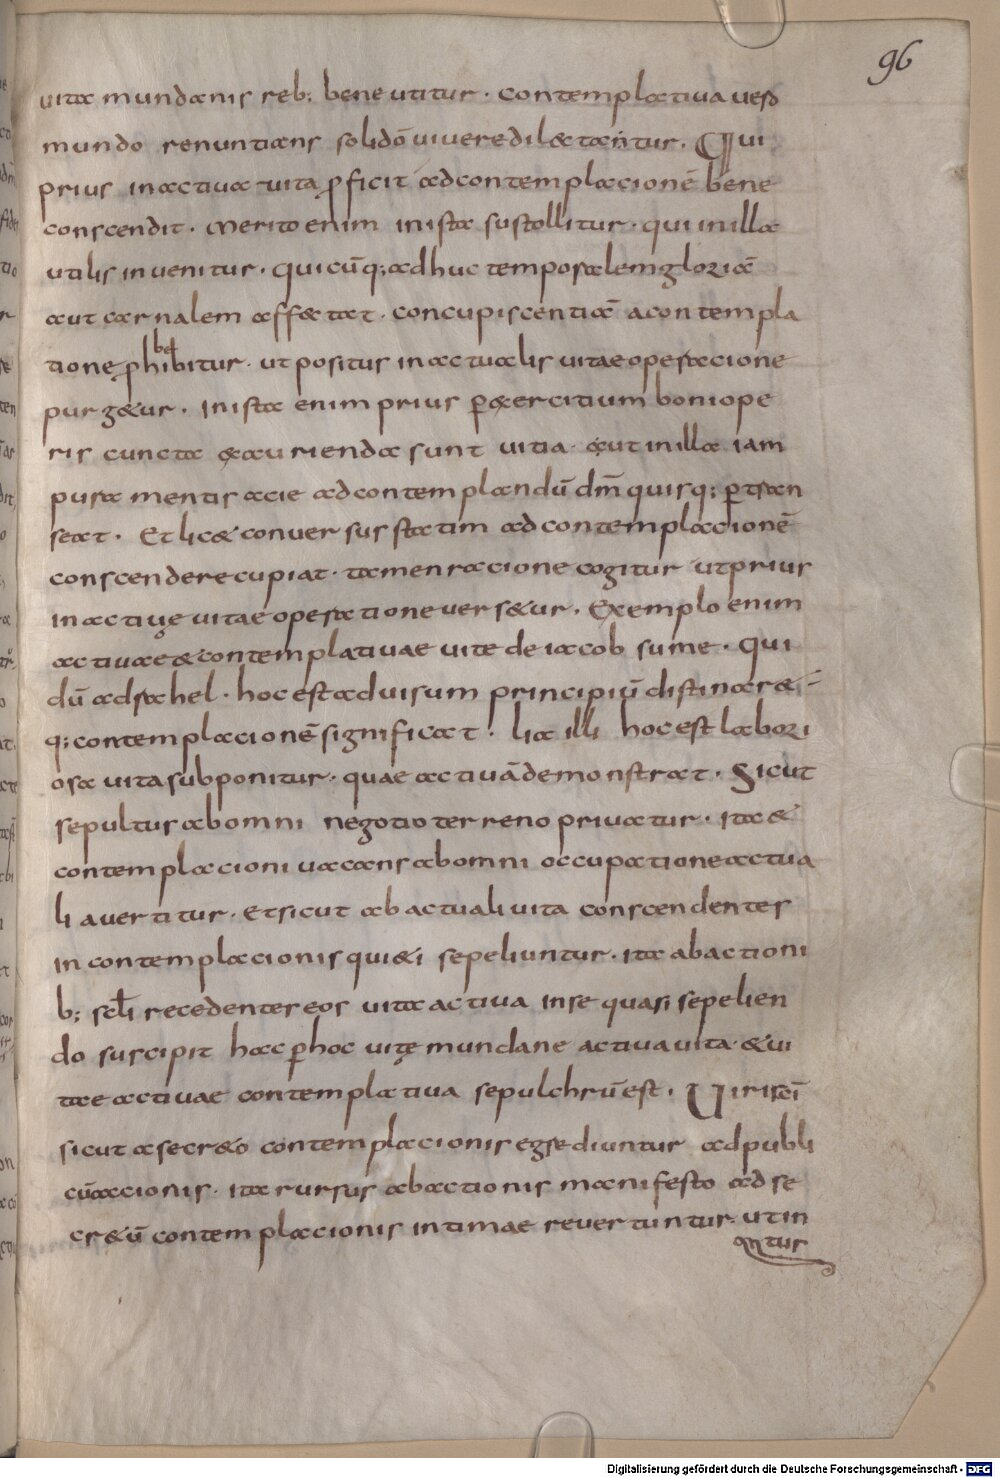 96
uitae mundanis reb; bene utitur. contemplatiua uero
mundo renuntians soli dō uiuere dilectantur. Qui
prius in actiua uita ꝓficit ad contemplacionē bene
conscendit. merito enim in ista sustollitur. qui in illa
utilis inuenitur. quicūq; adhuc temporalem gloriā
aut carnalem affectat. concupiscentiā a contempla
tione ꝓhibitur. ut positus in actualis uitae operacione
purgetur. in ista enim prius ꝑ exercitium boni ope
ris cuncta exaurienda sunt uitia. ut in illa iam
pura mentis acie ad contemplandū dm̄ quisq; ꝑtran
seat. Et licet conuersus statim ad contemplacionē
conscendere cupiat. tamen racione cogitur ut prius
in actiuę uitae operatione uersetur. Exemplo enim
actiuae & contemplatiuae uite de iacob sume. qui
dū ad rachel. hoc est ad uisum principiū distinare&
q; contemplacionē significat. lia illi hoc est labori
osa uita subponitur. quae actiuā demonstrat. Sicut
sepultus ab omni negotio terreno priuatur. ita &
contemplacioni uacans ab omni occupatione actua
li auertitur. Et sicut ab actuali uita conscendentes
in contemplacionis quieti sepeliuntur. ita ab actioni
b; scl̄i recedentes eos uita actiua in se quasi sepelien
do suscipit hac ꝑ hoc uitę mundane actiua uita. & ui
tae actiuae contemplatiua sepulchrū est. Uiri scī
sicut a secreto contemplacionis egrediuntur ad publi
cū accionis. ita rursus ab actionis manifesto ad se
cretū contemplacionis intimae reuertuntur. ut in
antur
Digitalisierung gefördert durch die Deutsche Forschungsgemeinschaft - DFG